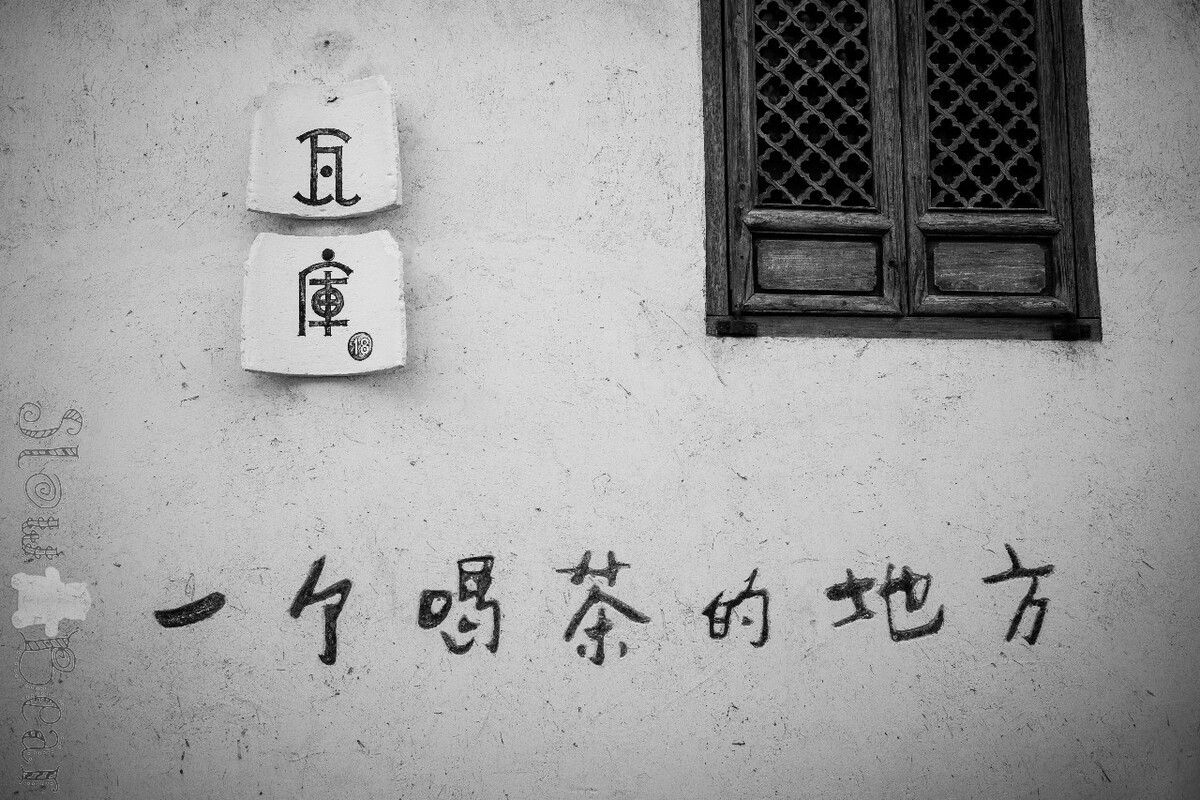 瓦
庫
18
一个喝茶的地方
Slow Bear